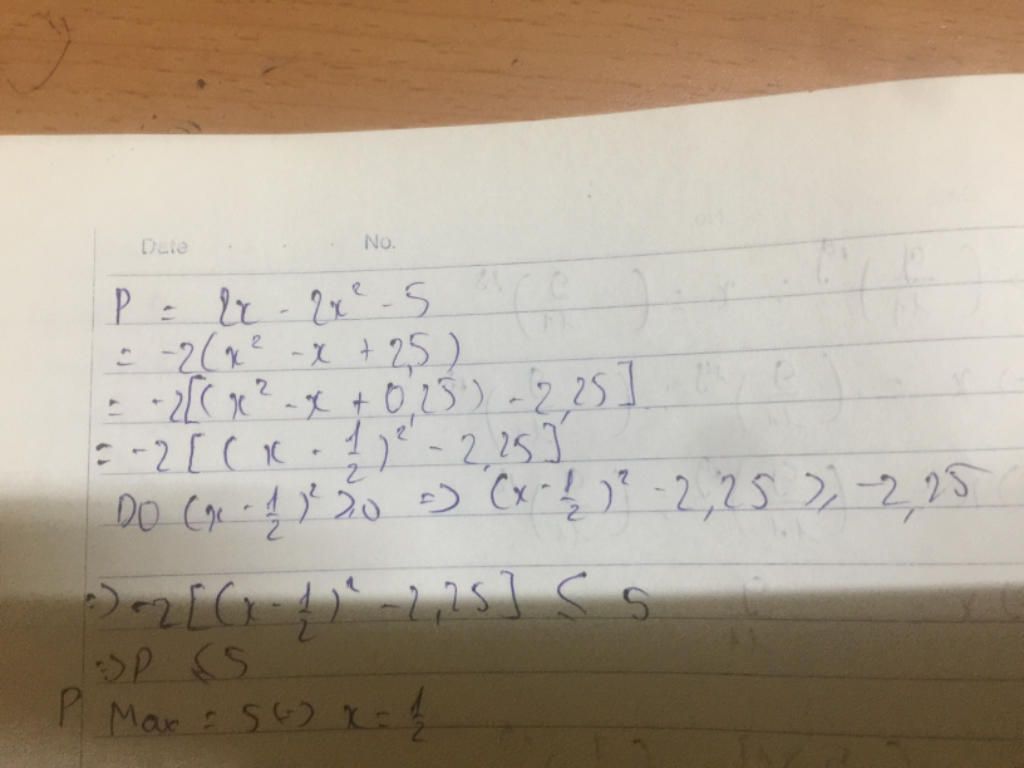 Date No.
P = 2x - 2x² - 5
= -2(x² - x + 2,5)
= -2[(x² - x + 0,25) - 2,25]
= -2[(x - 1/2)² - 2,25]
DO (x - 1/2)² ≥ 0 => (x - 1/2)² - 2,25 ≥ -2,25
=> -2[(x - 1/2)² - 2,25] ≤ 5
=> P ≤ 5
P Max = 5 <=> x = 1/2